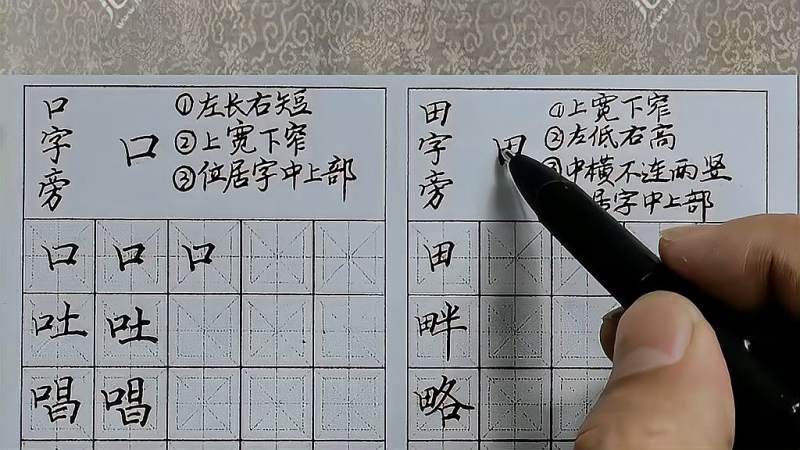 口字旁
口
①左长右短
②上宽下窄
③位居字中上部
口 口 口
吐 吐
唱 唱
田字旁
田
①上宽下窄
②左低右高
③中横不连两竖
居字中上部
田
畔
略